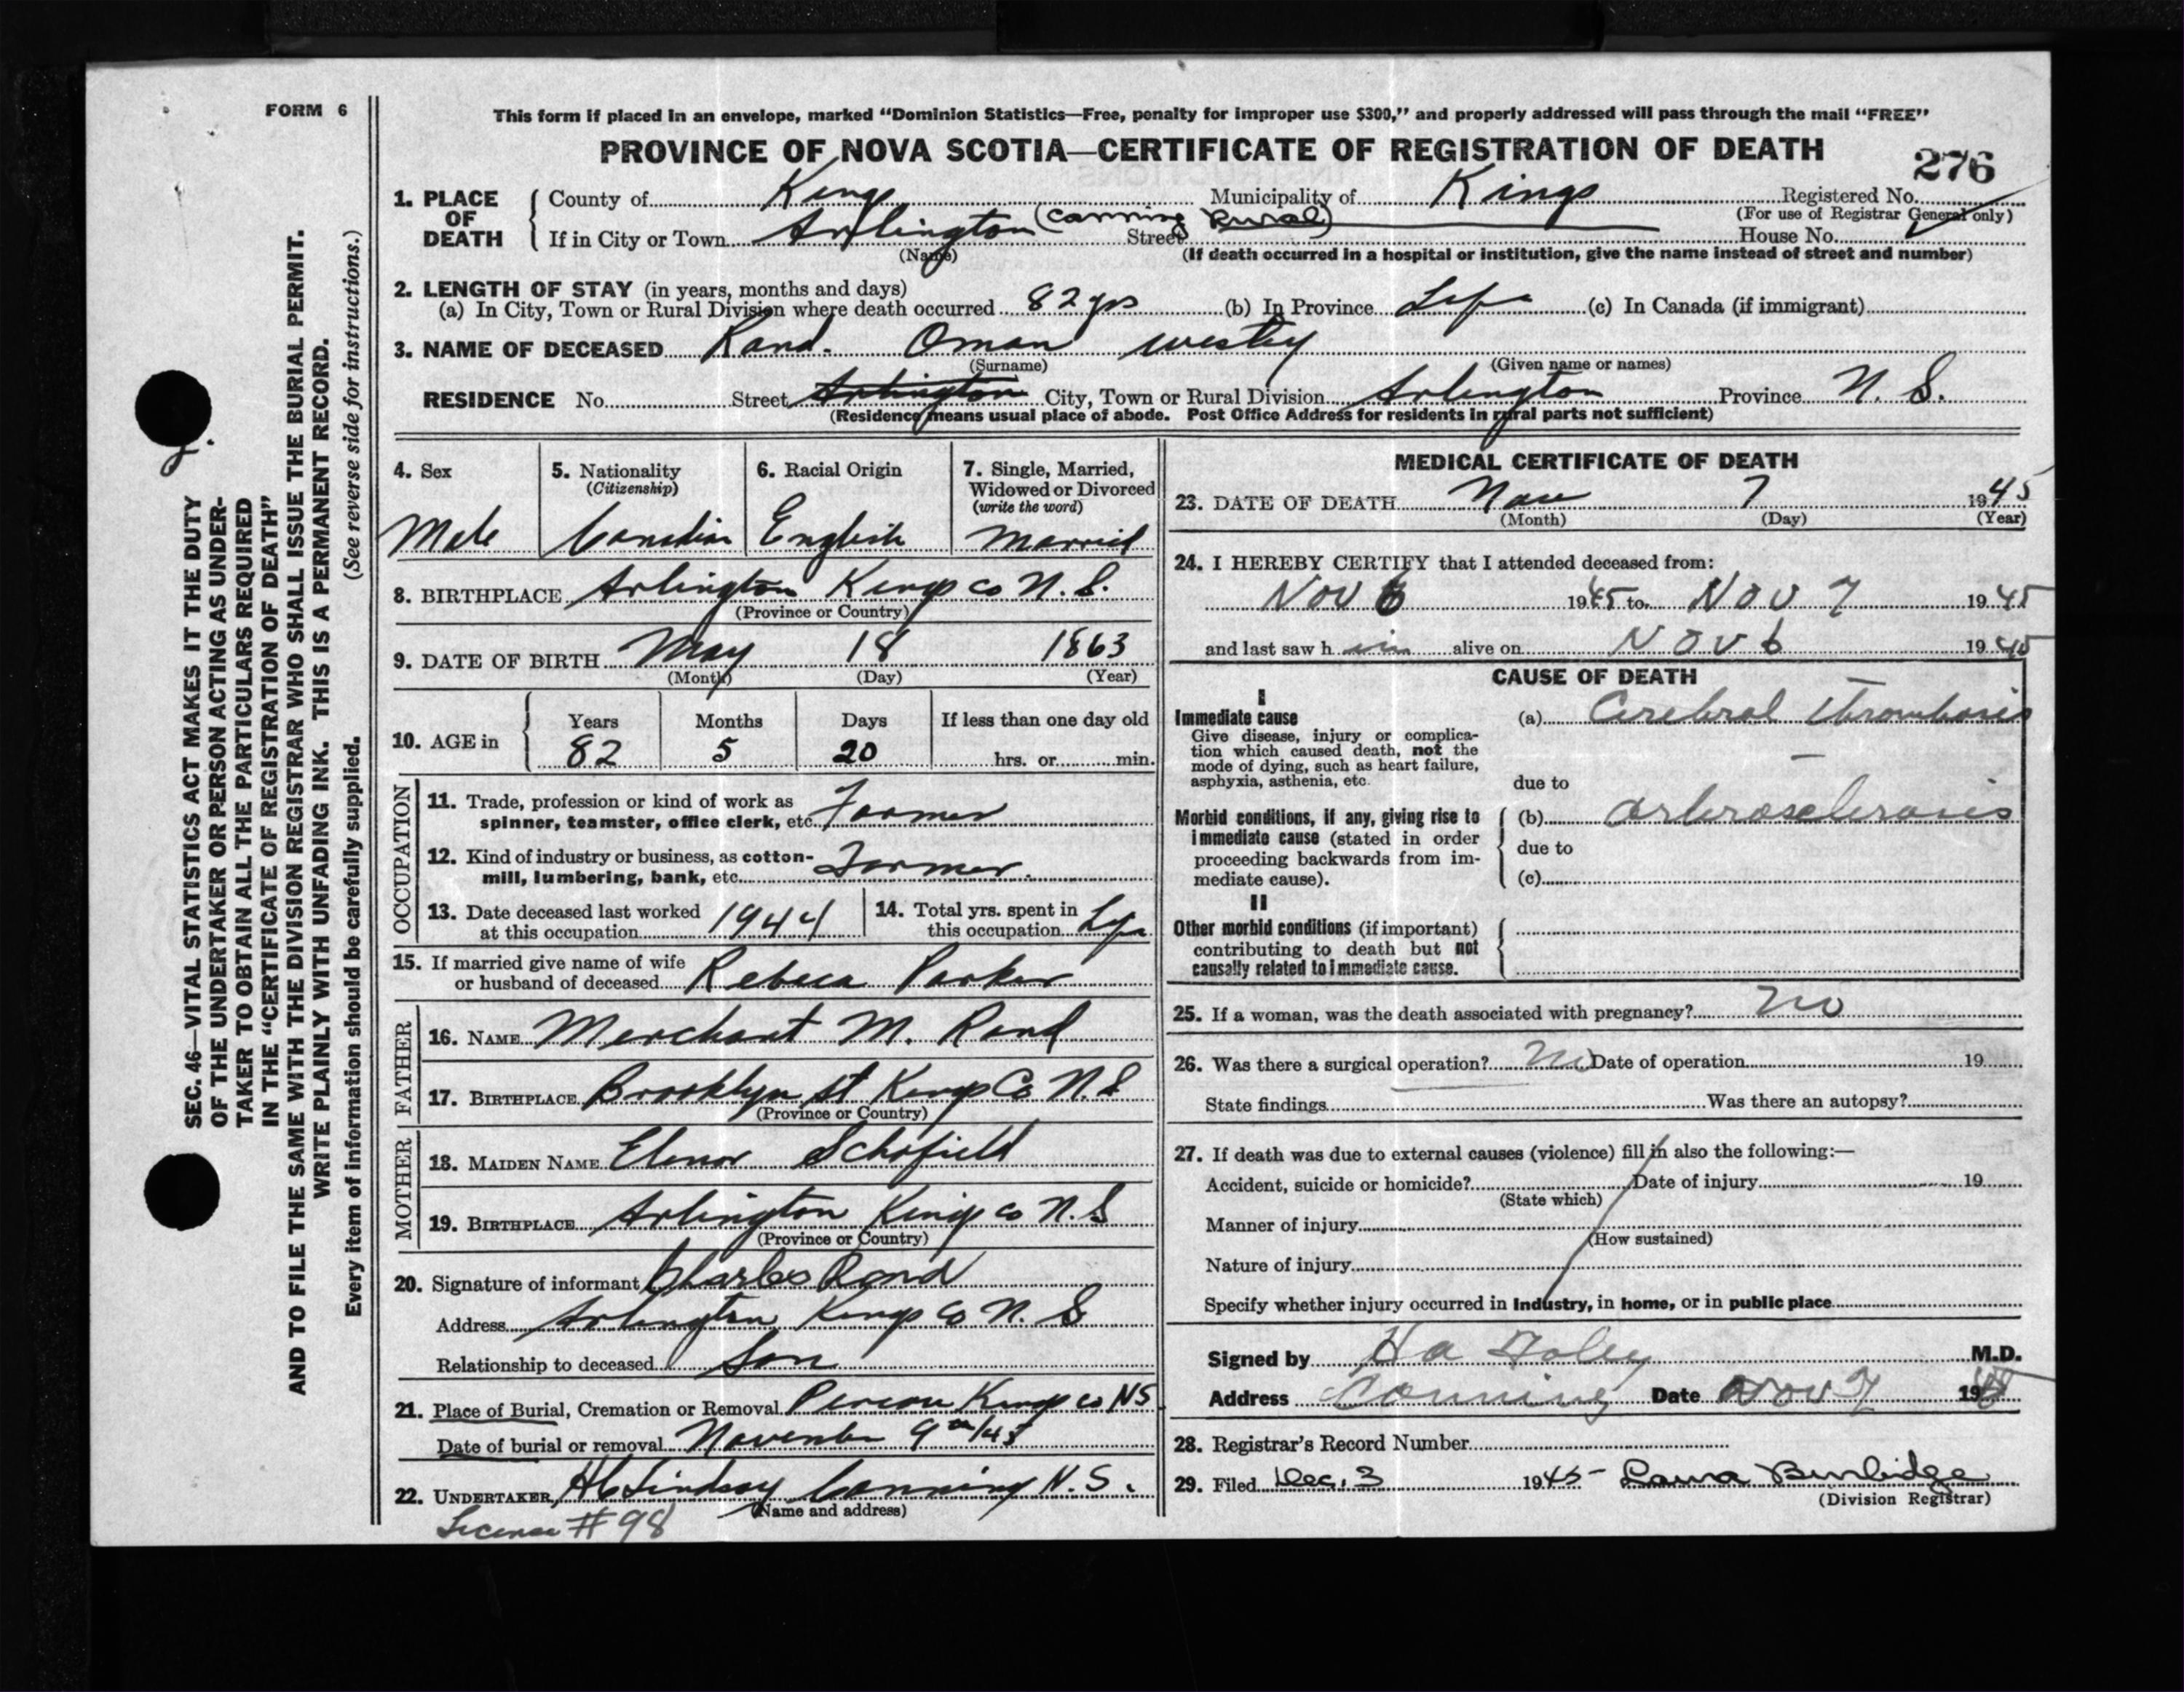 FORM 6
This form if placed in an envelope, marked "Dominion Statistics—Free, penalty for improper use $300," and properly addressed will pass through the mail "FREE"
PROVINCE OF NOVA SCOTIA—CERTIFICATE OF REGISTRATION OF DEATH
276
1. PLACE OF DEATH
County of Kings Municipality of Kings Registered No.
(For use of Registrar General only)
If in City or Town Arlington (Canning Rural) Street House No.
(Name) (If death occurred in a hospital or institution, give the name instead of street and number)
2. LENGTH OF STAY (in years, months and days)
(a) In City, Town or Rural Division where death occurred 82 yrs (b) In Province Life (c) In Canada (if immigrant)
3. NAME OF DECEASED Rand. Oman Westly
(Surname) (Given name or names)
RESIDENCE No. Street Arlington City, Town or Rural Division Arlington Province N. S.
(Residence means usual place of abode. Post Office Address for residents in rural parts not sufficient)
4. Sex
Male
5. Nationality
(Citizenship)
Canadian
6. Racial Origin
English
7. Single, Married,
Widowed or Divorced
(write the word)
Married
8. BIRTHPLACE Arlington Kings Co N. S.
(Province or Country)
9. DATE OF BIRTH May 18 1863
(Month) (Day) (Year)
10. AGE in
Years Months Days If less than one day old
82 5 20 hrs. or min.
OCCUPATION
11. Trade, profession or kind of work as
spinner, teamster, office clerk, etc. Farmer
12. Kind of industry or business, as cotton-
mill, lumbering, bank, etc. Farmer.
13. Date deceased last worked
at this occupation 1944
14. Total yrs. spent in
this occupation Life
15. If married give name of wife
or husband of deceased Rebeca Parker
FATHER
16. NAME Merchant M. Rand
17. BIRTHPLACE Brooklyn St Kings Co N. S
(Province or Country)
MOTHER
18. MAIDEN NAME Elenor Schofield
19. BIRTHPLACE Arlington Kings Co N. S
(Province or Country)
20. Signature of informant Charles Rand
Address Arlington Kings Co N. S
Relationship to deceased Son
21. Place of Burial, Cremation or Removal Pereau Kings Co NS
Date of burial or removal November 9th/45
22. UNDERTAKER HC Lindsay Canning N. S.
(Name and address)
License # 98
MEDICAL CERTIFICATE OF DEATH
23. DATE OF DEATH Nov 7 1945
(Month) (Day) (Year)
24. I HEREBY CERTIFY that I attended deceased from:
Nov 6 1945 to Nov 7 1945
and last saw him alive on Nov 6 1945
CAUSE OF DEATH
I
Immediate cause
Give disease, injury or complica-
tion which caused death, not the
mode of dying, such as heart failure,
asphyxia, asthenia, etc.
(a) Cerebral Thrombosis
due to
Morbid conditions, if any, giving rise to
immediate cause (stated in order
proceeding backwards from im-
mediate cause).
(b) Arterosclerosis
due to
(c)
II
Other morbid conditions (if important)
contributing to death but not
causally related to immediate cause.
25. If a woman, was the death associated with pregnancy? no
26. Was there a surgical operation? no Date of operation 19
State findings Was there an autopsy?
27. If death was due to external causes (violence) fill in also the following:—
Accident, suicide or homicide? Date of injury 19
(State which)
Manner of injury
(How sustained)
Nature of injury
Specify whether injury occurred in Industry, in home, or in public place
Signed by M.D.
Address Canning Date Nov 7 1945
28. Registrar's Record Number
29. Filed Dec. 3 1945 Laura Burbidge
(Division Registrar)
SEC. 46—VITAL STATISTICS ACT MAKES IT THE DUTY
OF THE UNDERTAKER OR PERSON ACTING AS UNDER-
TAKER TO OBTAIN ALL THE PARTICULARS REQUIRED
IN THE "CERTIFICATE OF REGISTRATION OF DEATH"
AND TO FILE THE SAME WITH THE DIVISION REGISTRAR WHO SHALL ISSUE THE BURIAL PERMIT.
WRITE PLAINLY WITH UNFADING INK. THIS IS A PERMANENT RECORD.
Every item of information should be carefully supplied. (See reverse side for instructions.)